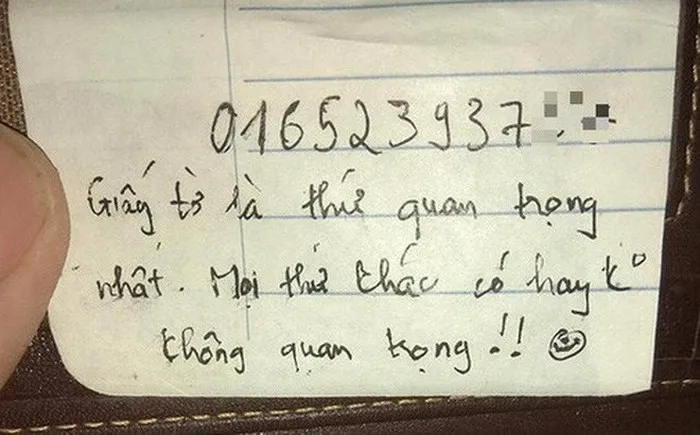 016523937
Giấy tờ là thứ quan trọng
nhất. Mọi thứ khác có hay k°
không quan trọng!!